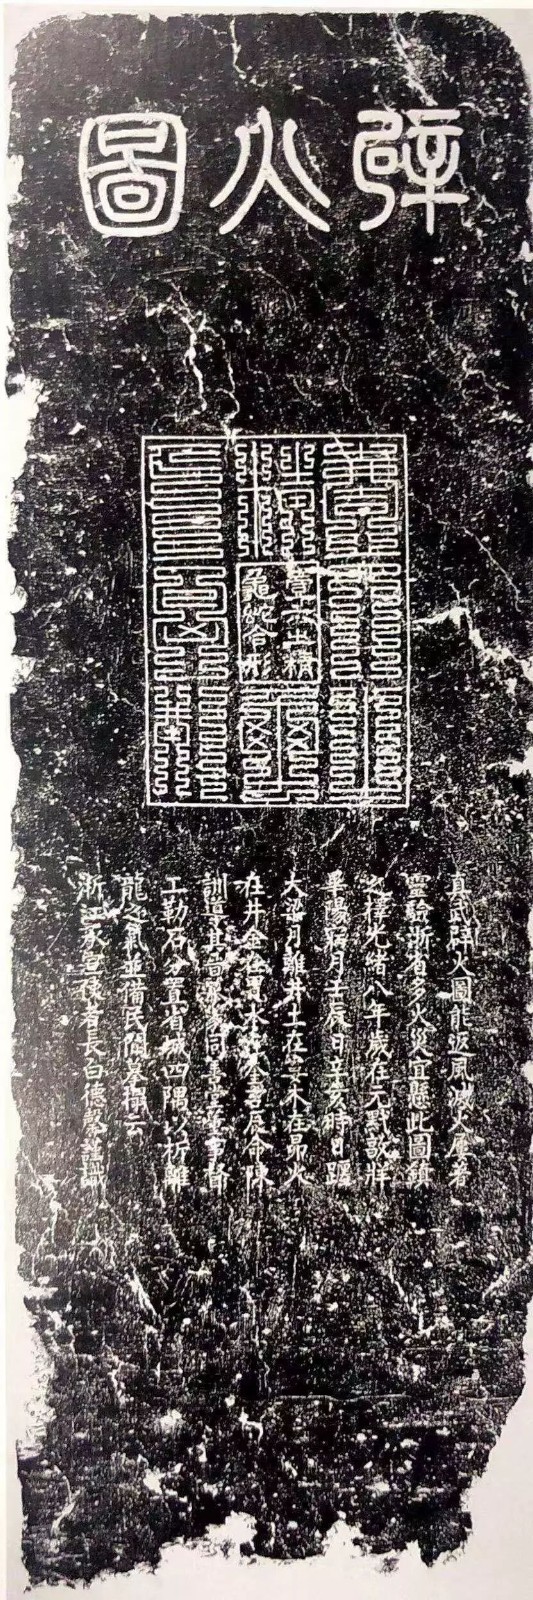 辟火圖
壹六 精
龜蛇合形
真武辟火圖能返風滅火屢著
靈驗浙省多火災宜懸此圖鎮
之擇光緒八年歲在元黓敦牂
畢陽寎月壬辰日辛亥時日躔
大梁月離井土在婁木在昴火
在井金在胃水在奎 辰命陳
訓導其 同善堂董事督
工勒石分置省城四隅以折離
龍之氣並備民間摹搨云
浙江承宣使者長白德馨謹識